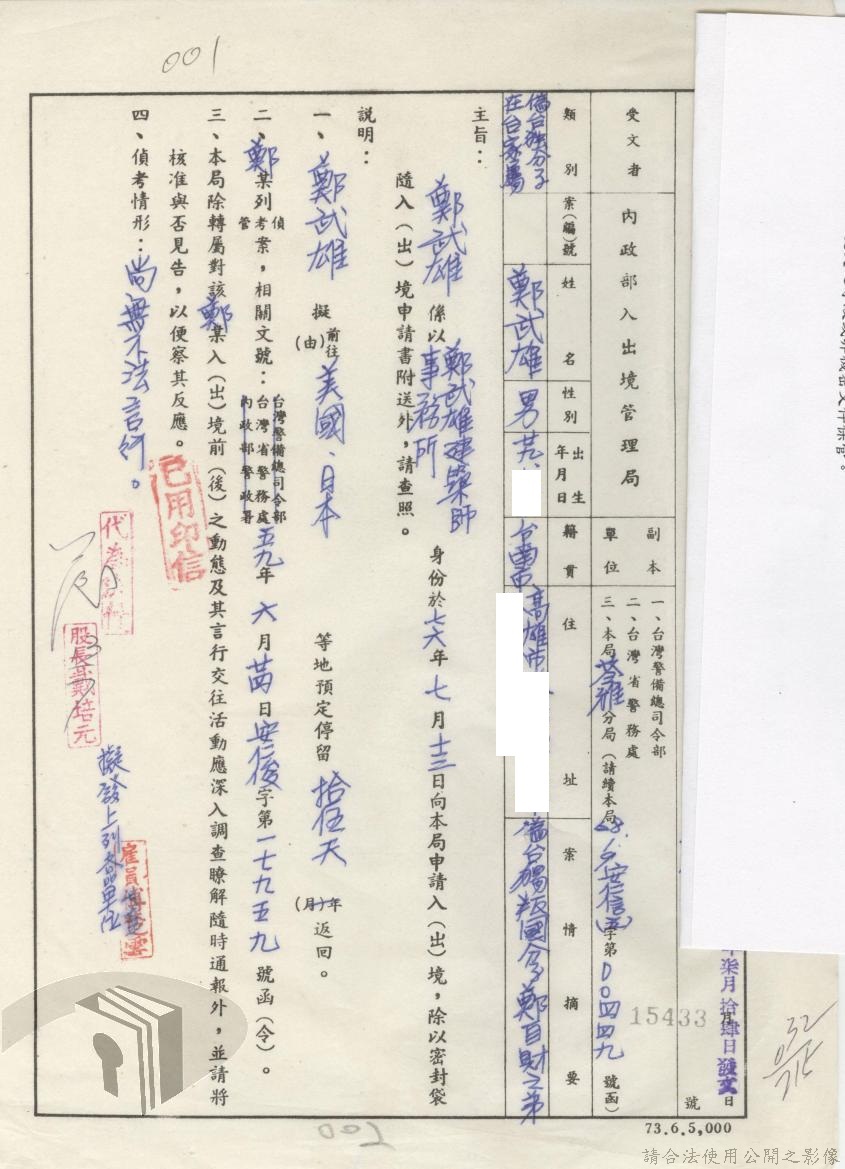 001
受文者
內政部入出境管理局
副本單位
一、台灣警備總司令部
二、台灣省警務處
三、本局苓雅分局(請續本局安仁信字第〇〇四四九號函)
柒月拾肆日發文
號
類別
案(編)號
姓名
性別
出生年月日
籍貫
住址
案情摘要
偽台獨分子在台家屬
鄭武雄
男
台南市
高雄市
偽台獨叛國分子鄭自財之弟
主旨:
鄭武雄係以鄭武雄建築師事務所身份於七六年七月十三日向本局申請入(出)境,除以密封袋
隨入(出)境申請書附送外,請查照。
說明:
一、鄭武雄擬前往(由)美國、日本等地預定停留拾伍天(月)年返回。
二、鄭某列偵考管案,相關文號:台灣警備總司令部台灣省警務處內政部警政署五九年六月廿四日安仁俊字第一七九五九號函(令)。
三、本局除轉屬對該鄭某入(出)境前(後)之動態及其言行交往活動應深入調查瞭解隨時通報外,並請將
核准與否見告,以便察其反應。
四、偵考情形:尚無不法言行。
已用印信
股長戴培元
擬發上列各單位
15433
73.6.5,000
請合法使用公開之影像